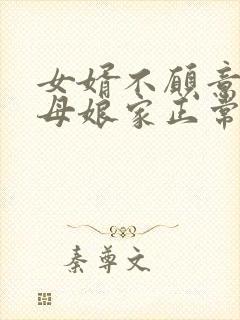 女婿不愿意
母娘家正常
秦尊文